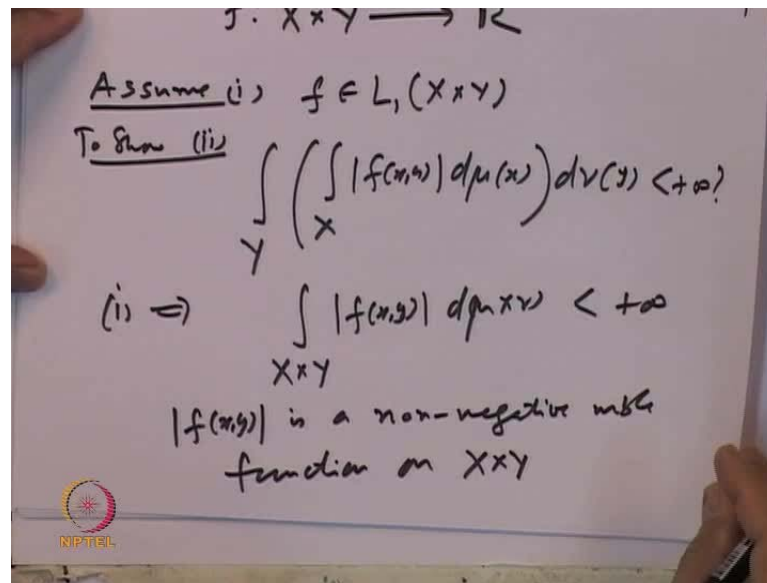 f : X × Y ⟶ ℝ
Assume (i) f ∈ L₁ (X×Y)
To Show (ii)
∫_Y ( ∫_X |f(x,y)| dμ(x) ) dν(y) < +∞?
(i) ⇒ ∫_{X×Y} |f(x,y)| dμ×ν) < +∞
|f(x,y)| is a non-negative mble
function on X×Y
NPTEL